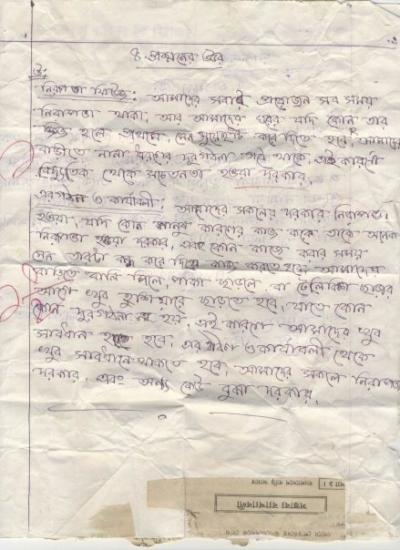 ৪ প্রশ্নের উত্তর
উঃ
নিরাপত্তা বিষয়ে: আমাদের সবাই প্রয়োজন সব সময়
নিরাপত্তা থাকা, আর আমাদের ঘরের যদি কোন তার
হলে প্রথমে মেন সুইচটি বন্ধ দিতে হবে, আমাদের
বাড়ীতে নানা ধরনের দুরঘটনা থাকে, এই কারণে
থেকে সচেতনতা হওয়া দরকার,
এরগঠন ও কার্যাবলী: আমাদের সকলের দরকার নিরাপত্তা
হওয়া, যদি কোন মানুষ কারেণের কাজ করে তাকে অনেক
নিরাপত্তা হওয়া দরকার, এবং কোন কাজ করার সময়
মেন তারটা বন্ধ করে দিয়ে কাজ করতে হবে আমাদের
বাড়িতে বাতি দিলে, পাকা ছাড়লে বা টেলিভিশন ছাড়ার
আগে খুব হুশিয়ারে ছাড়তে হবে, যাতে কোন
দুরঘটনা না হয়, এই কারণে আমাদের খুব
সাবধান হতে হবে, এরগঠন ও কার্যাবলী থেকে
খুব সাবধানে থাকতে হবে, আমাদের সকলে নিরাপত্তা
দরকার, এবং অন্য কেউ বুঝা দরকার,